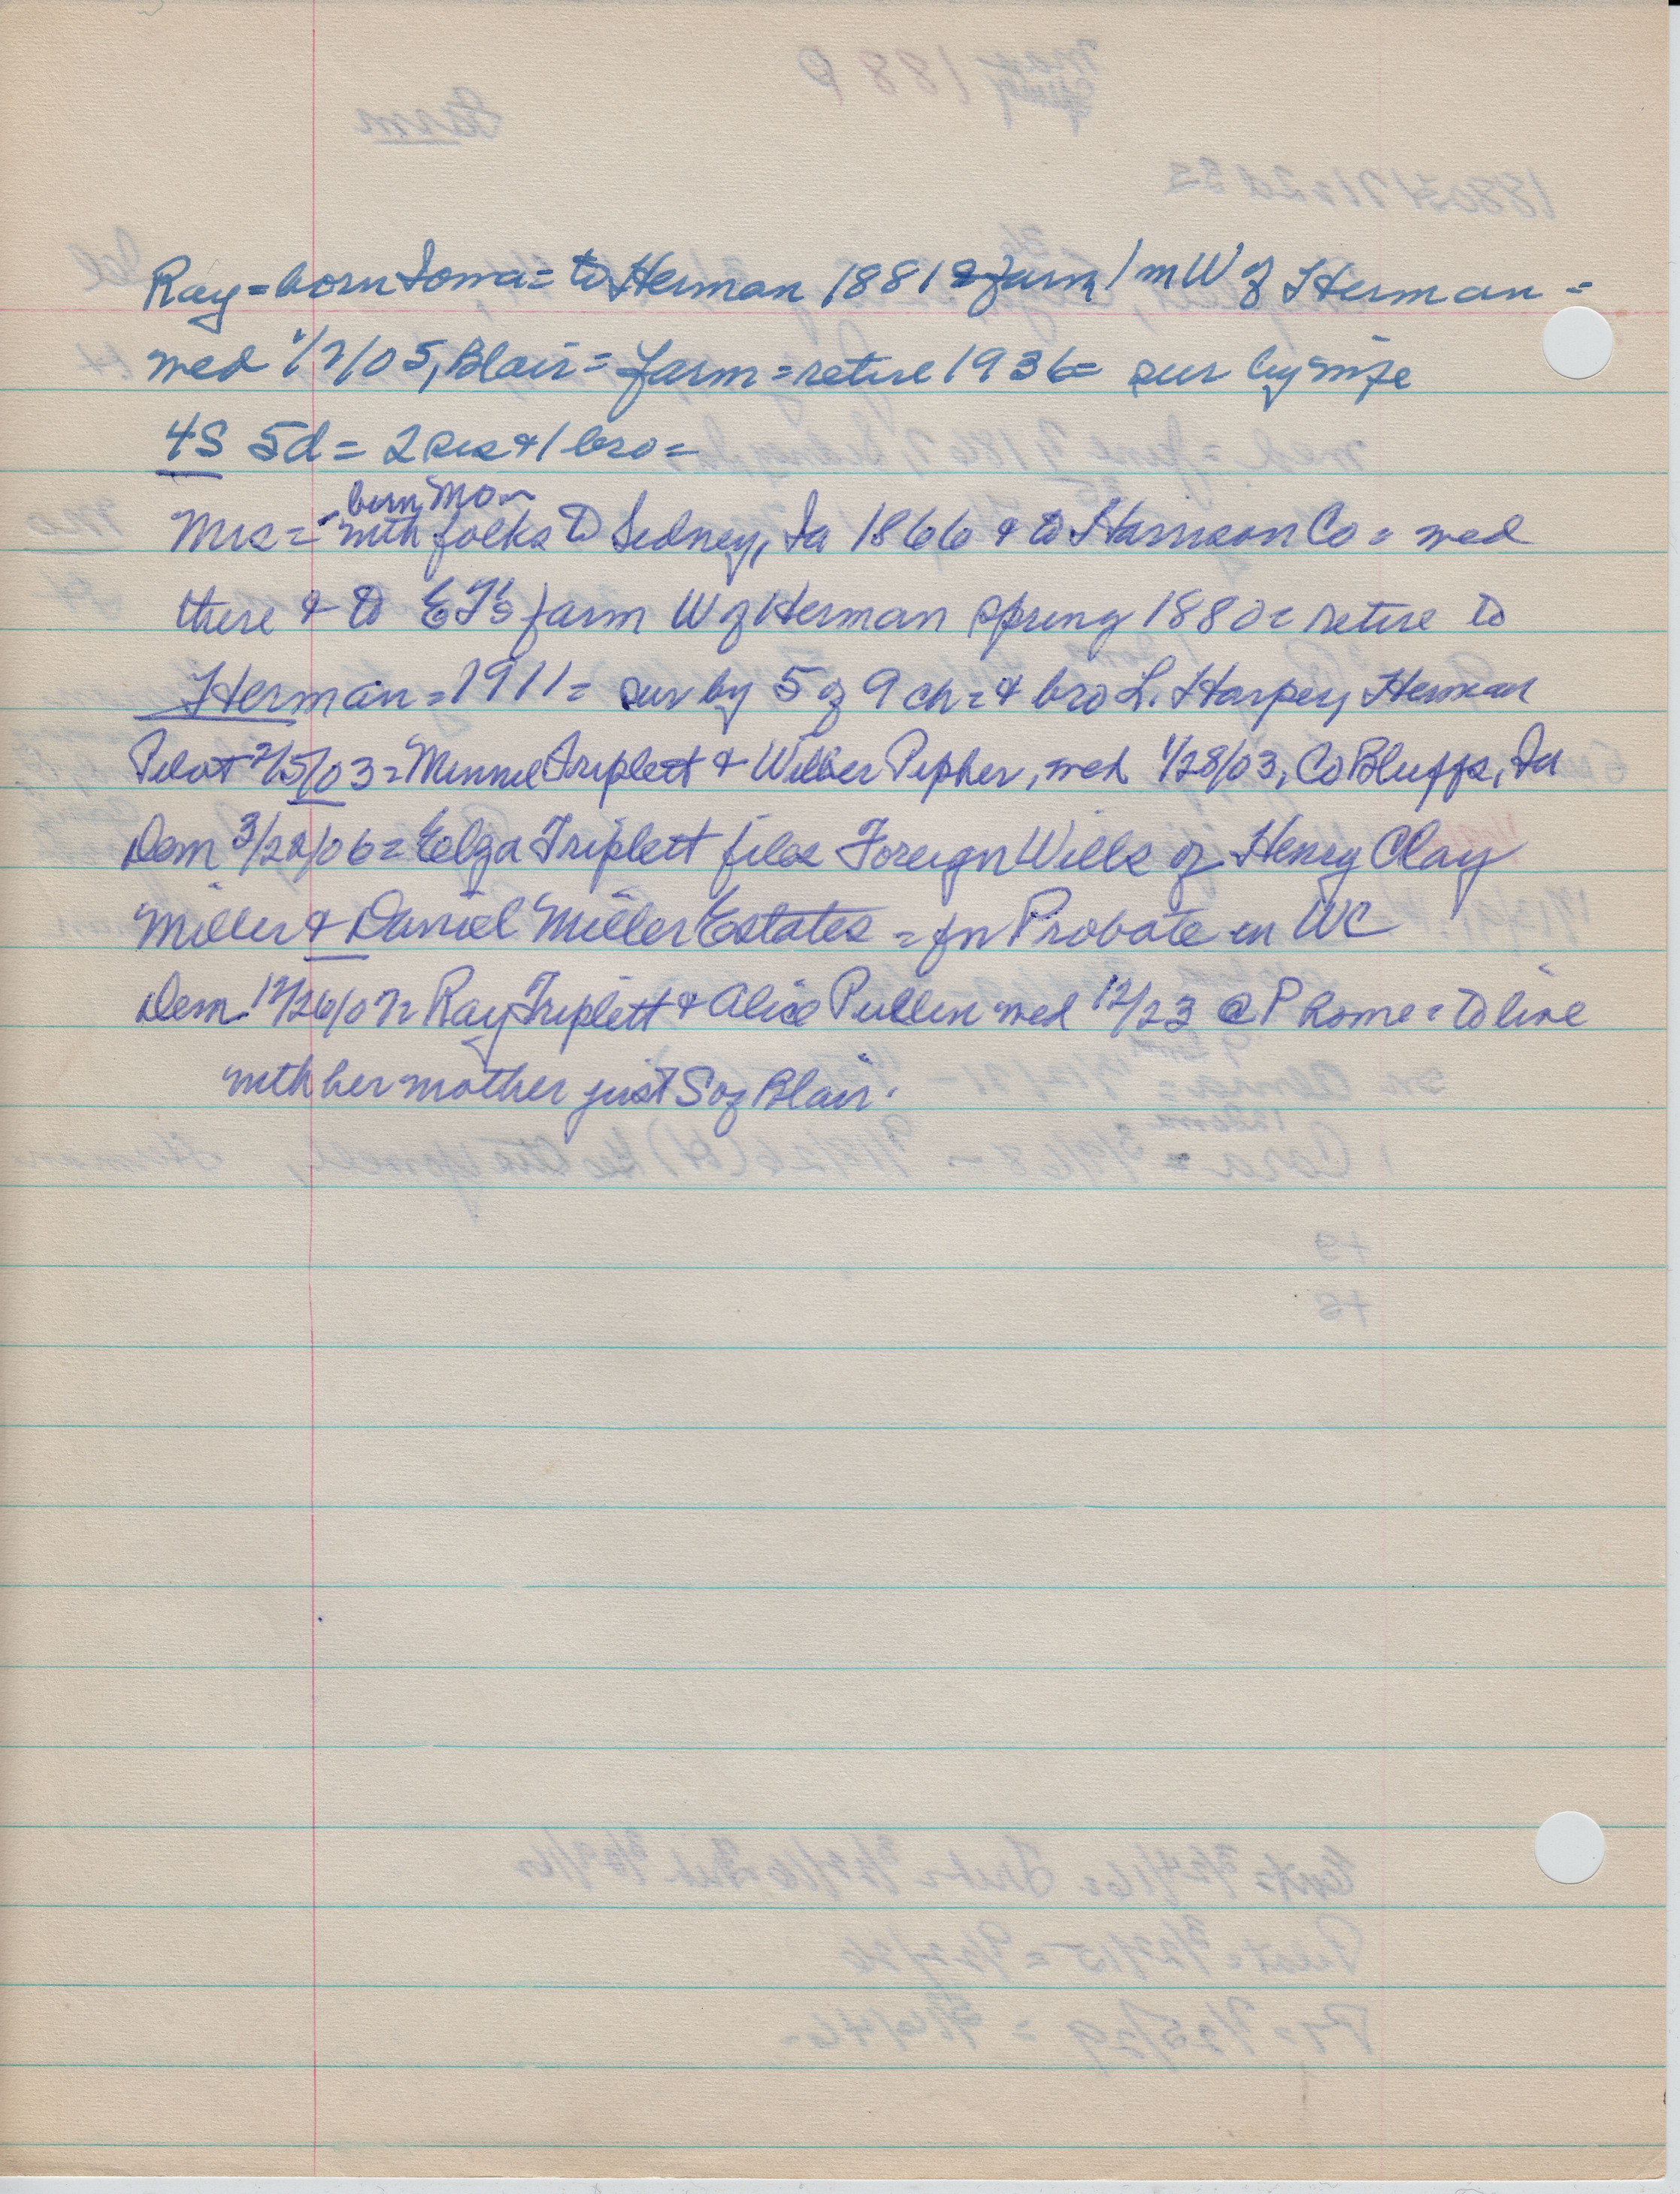 Ray = born Iowa = to Herman 1881 = farm 1 m W of Herman =
wed 1/2/05, Blair = farm = retire 1936 = sur by wife
4S 5d = 2 sis & 1 bro =
born Mo
Mrs = with folks to Sidney, Ia 1866 & to Harrison Co = wed
there & to ET's farm W of Herman spring 1880 = retire to
Herman = 1911 = sur by 5 of 9 ch = & bro L. Harper, Herman
Pilot 2/5/03 = Minnie Triplett & Wilber Pepher, wed 1/28/03, Co Bluffs, Ia
Dem 3/22/06 = Eelza Triplett files Foreign Wills of Henry Clay
Miller & Daniel Miller Estates = for Probate in WC
Dem. 12/26/07 = Ray Triplett & Alice Pullen wed 12/23 @ P home = to live
with her mother just S of Blair.